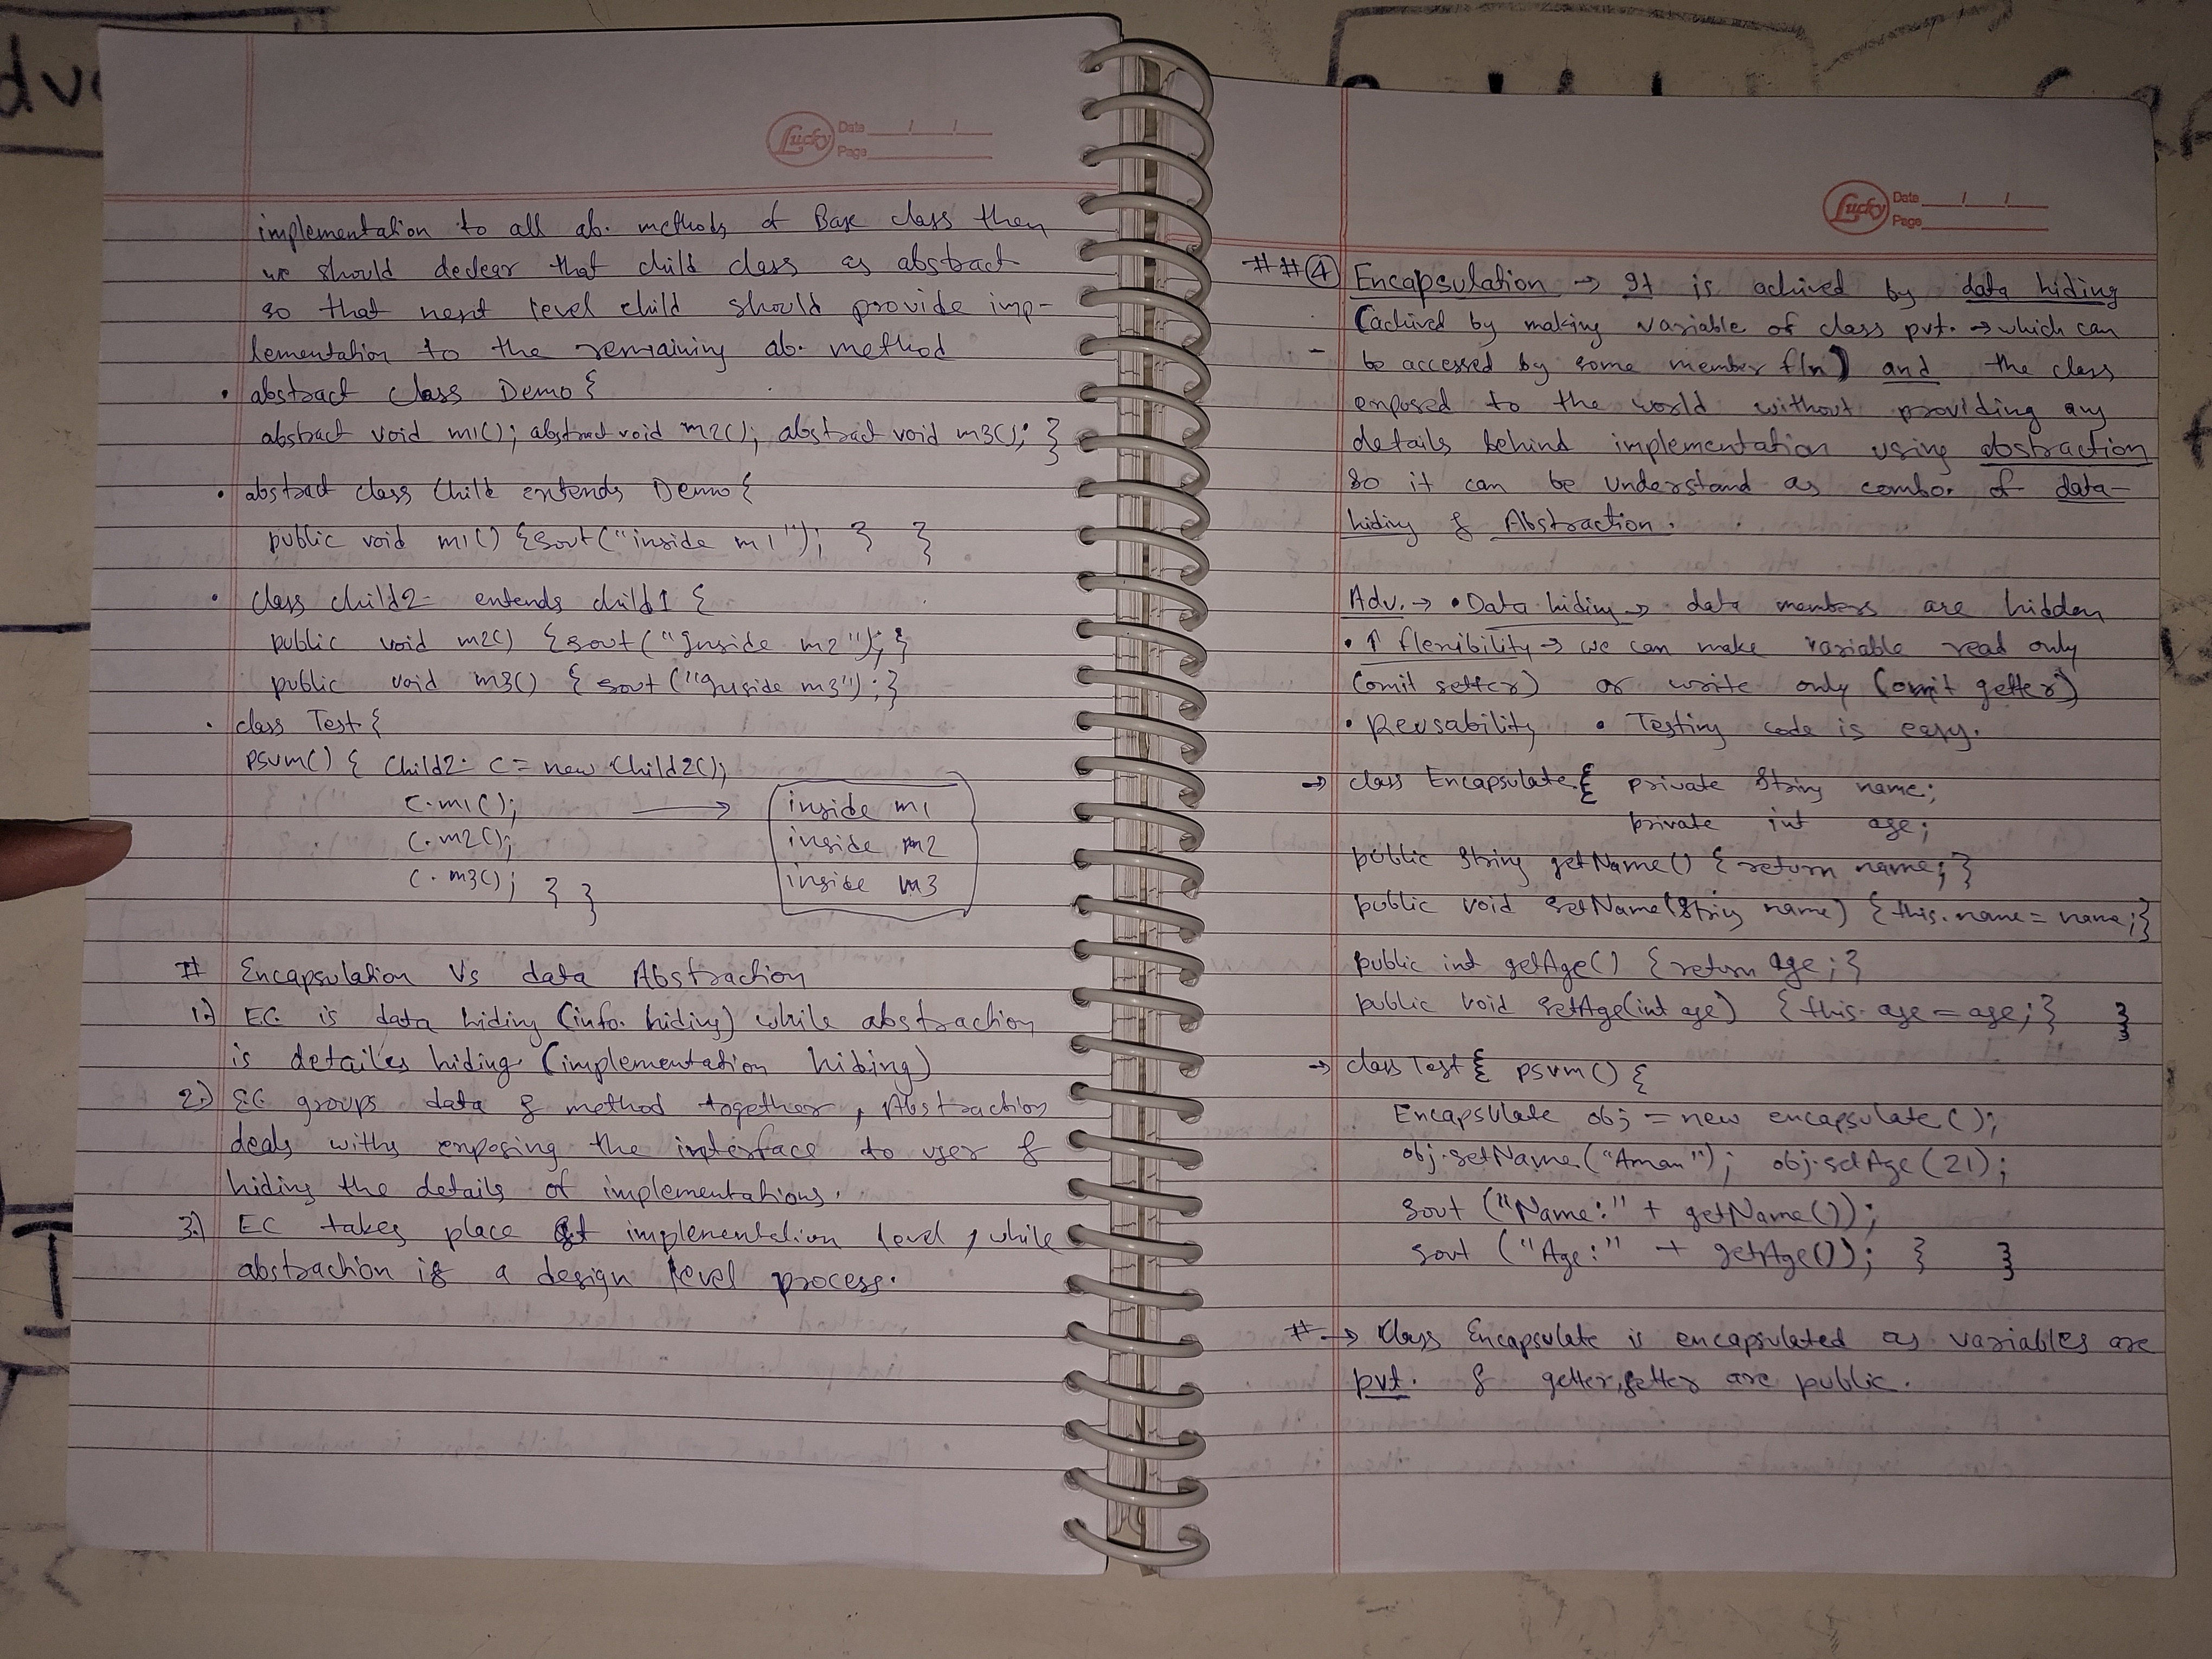 Lucky Date / / Page
implementation to all ab. methods of Base class then
we should declear that child class as abstract
so that next level child should provide imp-
lementation to the remaining ab. method
• abstract class Demo {
abstract void m1(); abstract void m2(); abstract void m3(); }
• abstract class Child extends Demo {
public void m1() {sout("inside m1"); } }
• class child2 extends child1 {
public void m2() {sout("Inside m2"); }
public void m3() { sout("Inside m3"); }
• class Test {
psvm() { Child2 c = new Child2();
c.m1(); → inside m1
c.m2(); inside m2
c.m3(); } } inside m3
# Encapsulation Vs data Abstraction
1.) EC is data hiding (info. hiding) while abstraction
is detailes hiding (implementation hiding)
2.) EC groups data & method together, Abstraction
deals withs exposing the interface to user &
hiding the details of implementations.
3.) EC takes place at implementation level, while
abstraction is a design level process.
Lucky Date / / Page
##④ Encapsulation → It is achived by data hiding
(achived by making variable of class pvt. → which can
- be accessed by some member f(n)) and the class
exposed to the world without providing any
details behind implementation using abstraction
So it can be understand as combo. of data-
hiding & Abstraction.
Adv. → • Data hiding → data members are hidden
• ↑ flexibility → we can make variable read only
(omit setter) or write only (omit getter)
• Reusability • Testing code is easy.
→ class Encapsulate { private String name;
private int age;
public String getName() { return name; }
public void setName(String name) { this.name = name; }
public int getAge() { return age; }
public void setAge(int age) { this.age = age; } }
→ class Test { psvm() {
Encapsulate obj = new encapsulate();
obj.setName("Aman"); obj.setAge(21);
sout ("Name:" + getName());
sout ("Age:" + getAge()); } }
# → Class Encapsulate is encapsulated as variables are
pvt. & getter, setter are public.